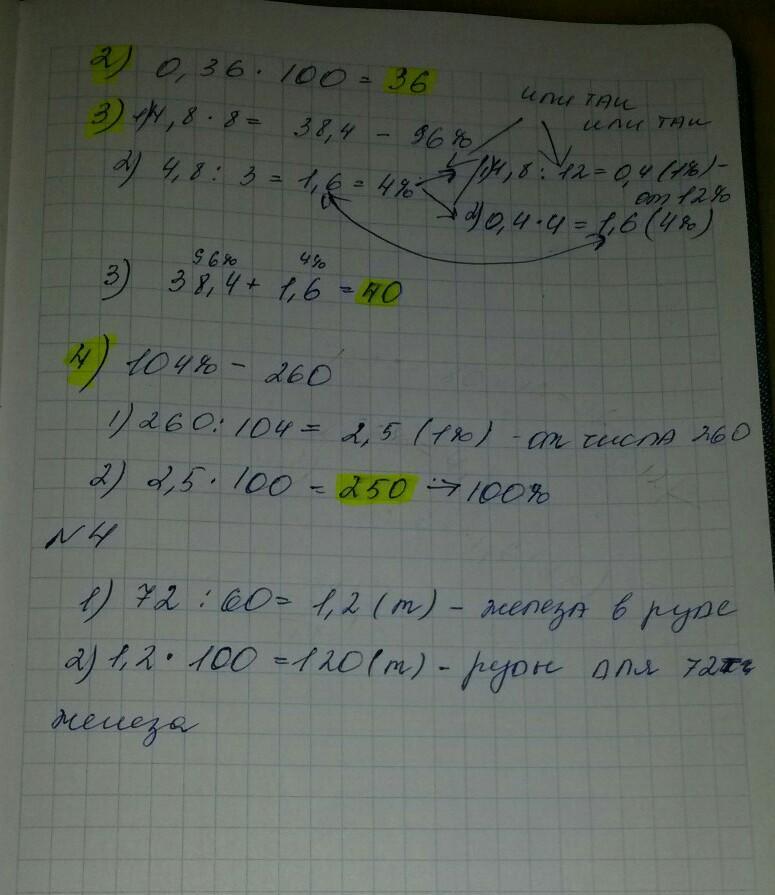 2) 0,36 · 100 = 36
или так
или так
3) 1) 4,8 · 8 = 38,4 - 96%
2) 4,8 : 3 = 1,6 = 4%
1) 4,8 : 12 = 0,4 (1%) -
от 12%
2) 0,4 · 4 = 1,6 (4%)
96% 4%
3) 38,4 + 1,6 = 40
4) 104% - 260
1) 260 : 104 = 2,5 (1%) - от числа 260
2) 2,5 · 100 = 250 → 100%
N4
1) 72 : 60 = 1,2 (т) - железа в руде
2) 1,2 · 100 = 120 (т) - руды для 72
железа